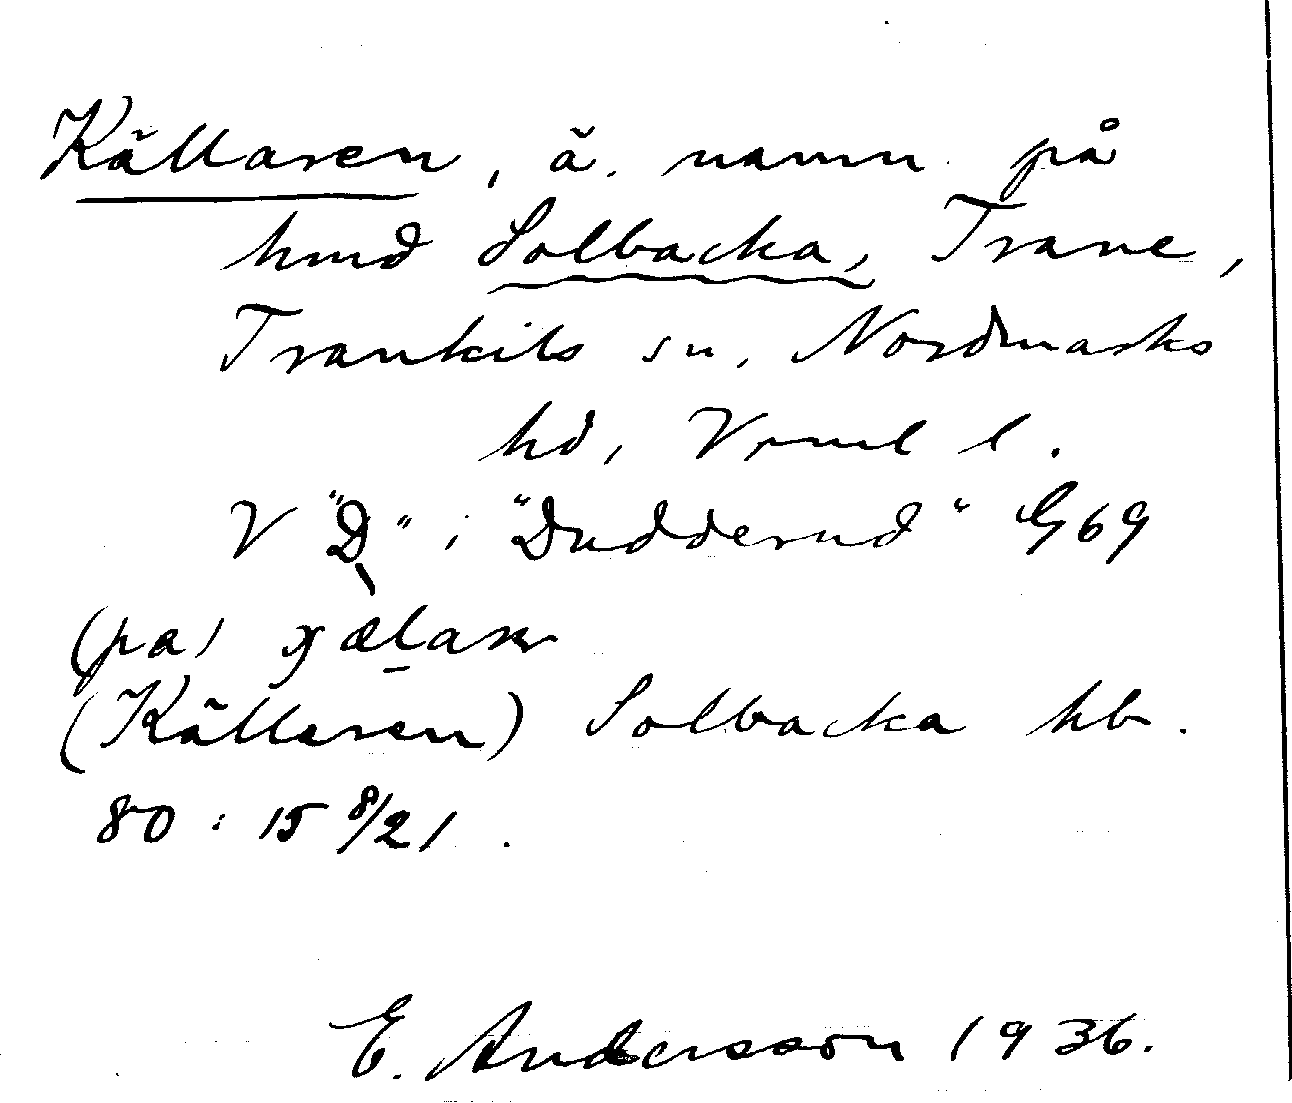 Källaren, ä. namn på
hmd Solbacka, Trane,
Trankils sn, Nordmarks
hd, Vrml l.
V "D" i "Dudderud" G69
(pa)
(Källaren) Solbacka hb.
80: 15 8/21.
E. Andersson 1936.